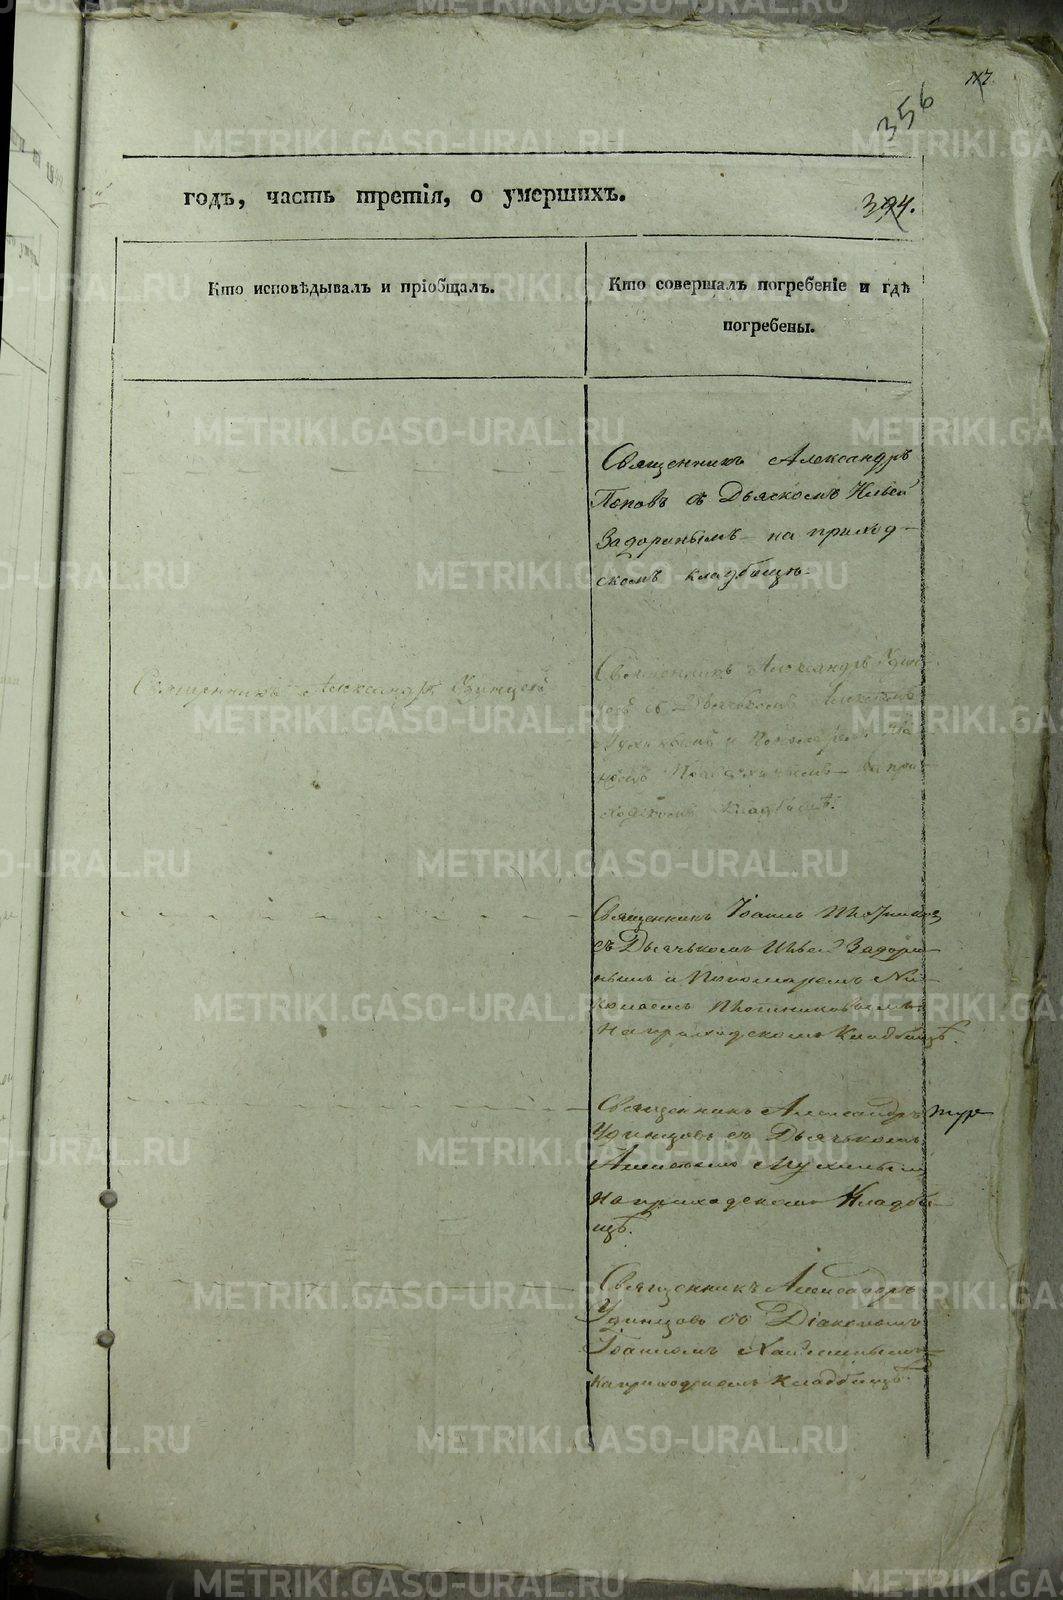 356
годъ, часть третія, о умершихъ.
394.
Кто исповѣдывалъ и пріобщалъ.
Кто совершалъ погребеніе и гдѣ
погребены.
Священникъ Александръ
Поповъ съ Дьячкомъ Ильей
Задоринымъ на приход-
скомъ кладбищѣ.
Священникъ Александръ Удинцовъ
Священникъ Александръ Удин-
цовъ съ Дьячькомъ Алексеемъ
и Пономаремъ
на при-
ходскомъ Кладбищѣ.
Священникъ Іоаннъ
съ Дьячькомъ Ильей Задори-
нымъ и Пономаремъ Ни-
колаемъ Плотниковымъ
на приходскомъ Кладбищѣ.
Священникъ Александръ
Удинцовъ съ Дьячькомъ
на приходскомъ Кладби-
щѣ.
Священникъ Александръ
Удинцовъ со Діакономъ
Іоанномъ
на приходскомъ Кладбищѣ.
METRIKI.GASO-URAL.RU